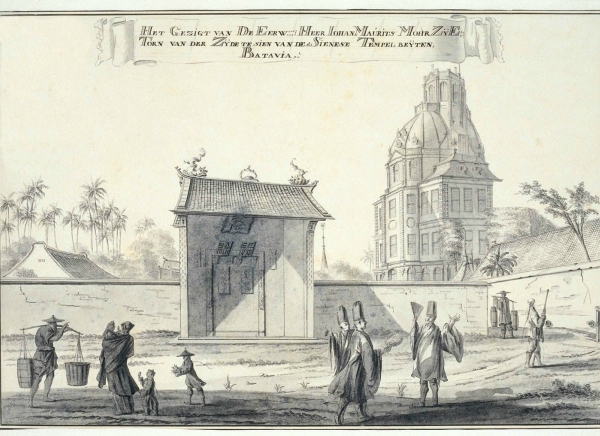 Het Gesigt van De Eerw: Heer Iohan Maurits Mohr Zy E:
Torn van der Zyde te sien van de Sienese Tempel beÿten
Batavia